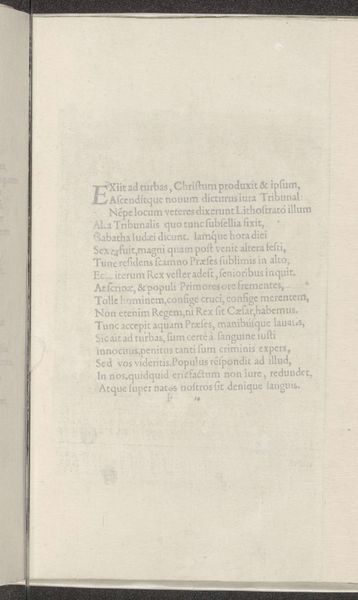 EXiit ad turbas, Christum produxit & ipsum,
Ascenditque nouum dicturus iura Tribunal
Nēpe locum veteres dixerunt Lithostrato illum
Alta Tribunalis quo tunc subsellia fixit,
Gabatha Iudæi dicunt. Iamque hora diei
Sexta fuit, magni quam post venit altera festi,
Tunc residens scamno Præses sublimis in alto,
Ecce iterum Rex vester adest, senioribus inquit.
At scribæ, & populi Primores ore frementes,
Tolle hominem, confige cruci, confige merentem,
Non etenim Regem, ni Rex sit Cæsar, habemus.
Tunc accepit aquam Præses, manibusque lauatis,
Sic ait ad turbas, sum certè à sanguine iusti
innocuus, penitus tanti sum criminis expers,
Sed vos videritis. Populus respondit ad illud,
In nos, quidquid erit factum non iure, redundet,
Atque super natos nostros sit denique sanguis.